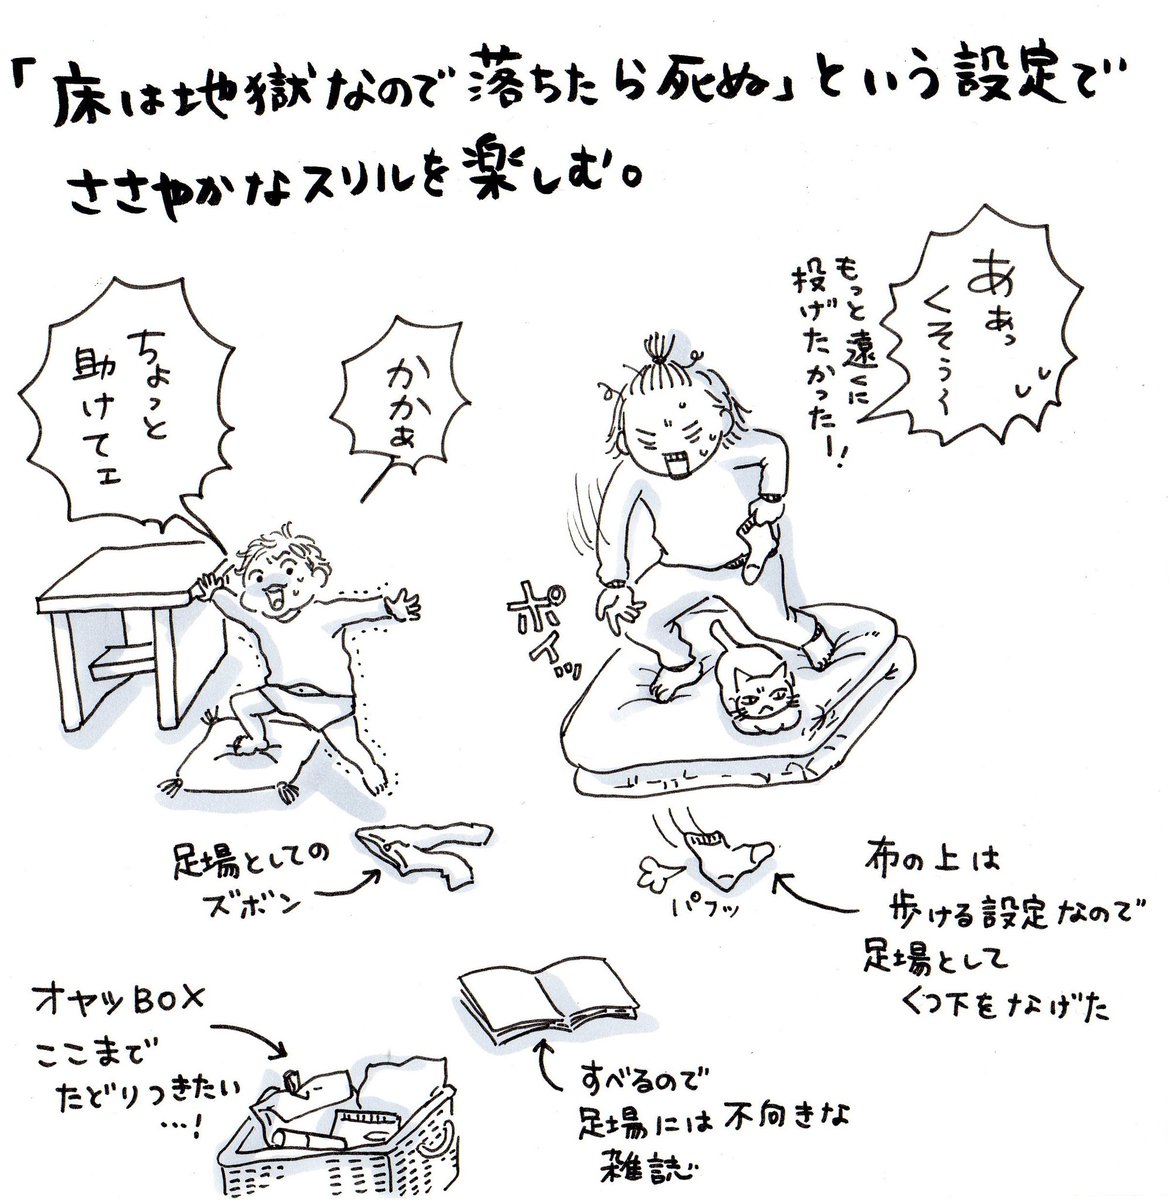 「床は地獄なので落ちたら死ぬ」という設定で
ささやかなスリルを楽しむ。
ああっ
くそぅぅ〜
もっと遠くに
投げたかったー!
かかぁ
ちょっと
助けてェ
ポイッ
足場としての
ズボン
パフッ
布の上は
歩ける設定なので
足場として
くつ下をなげた
オヤツBOX
ここまで
たどりつきたい
…!
すべるので
足場には不向きな
雑誌